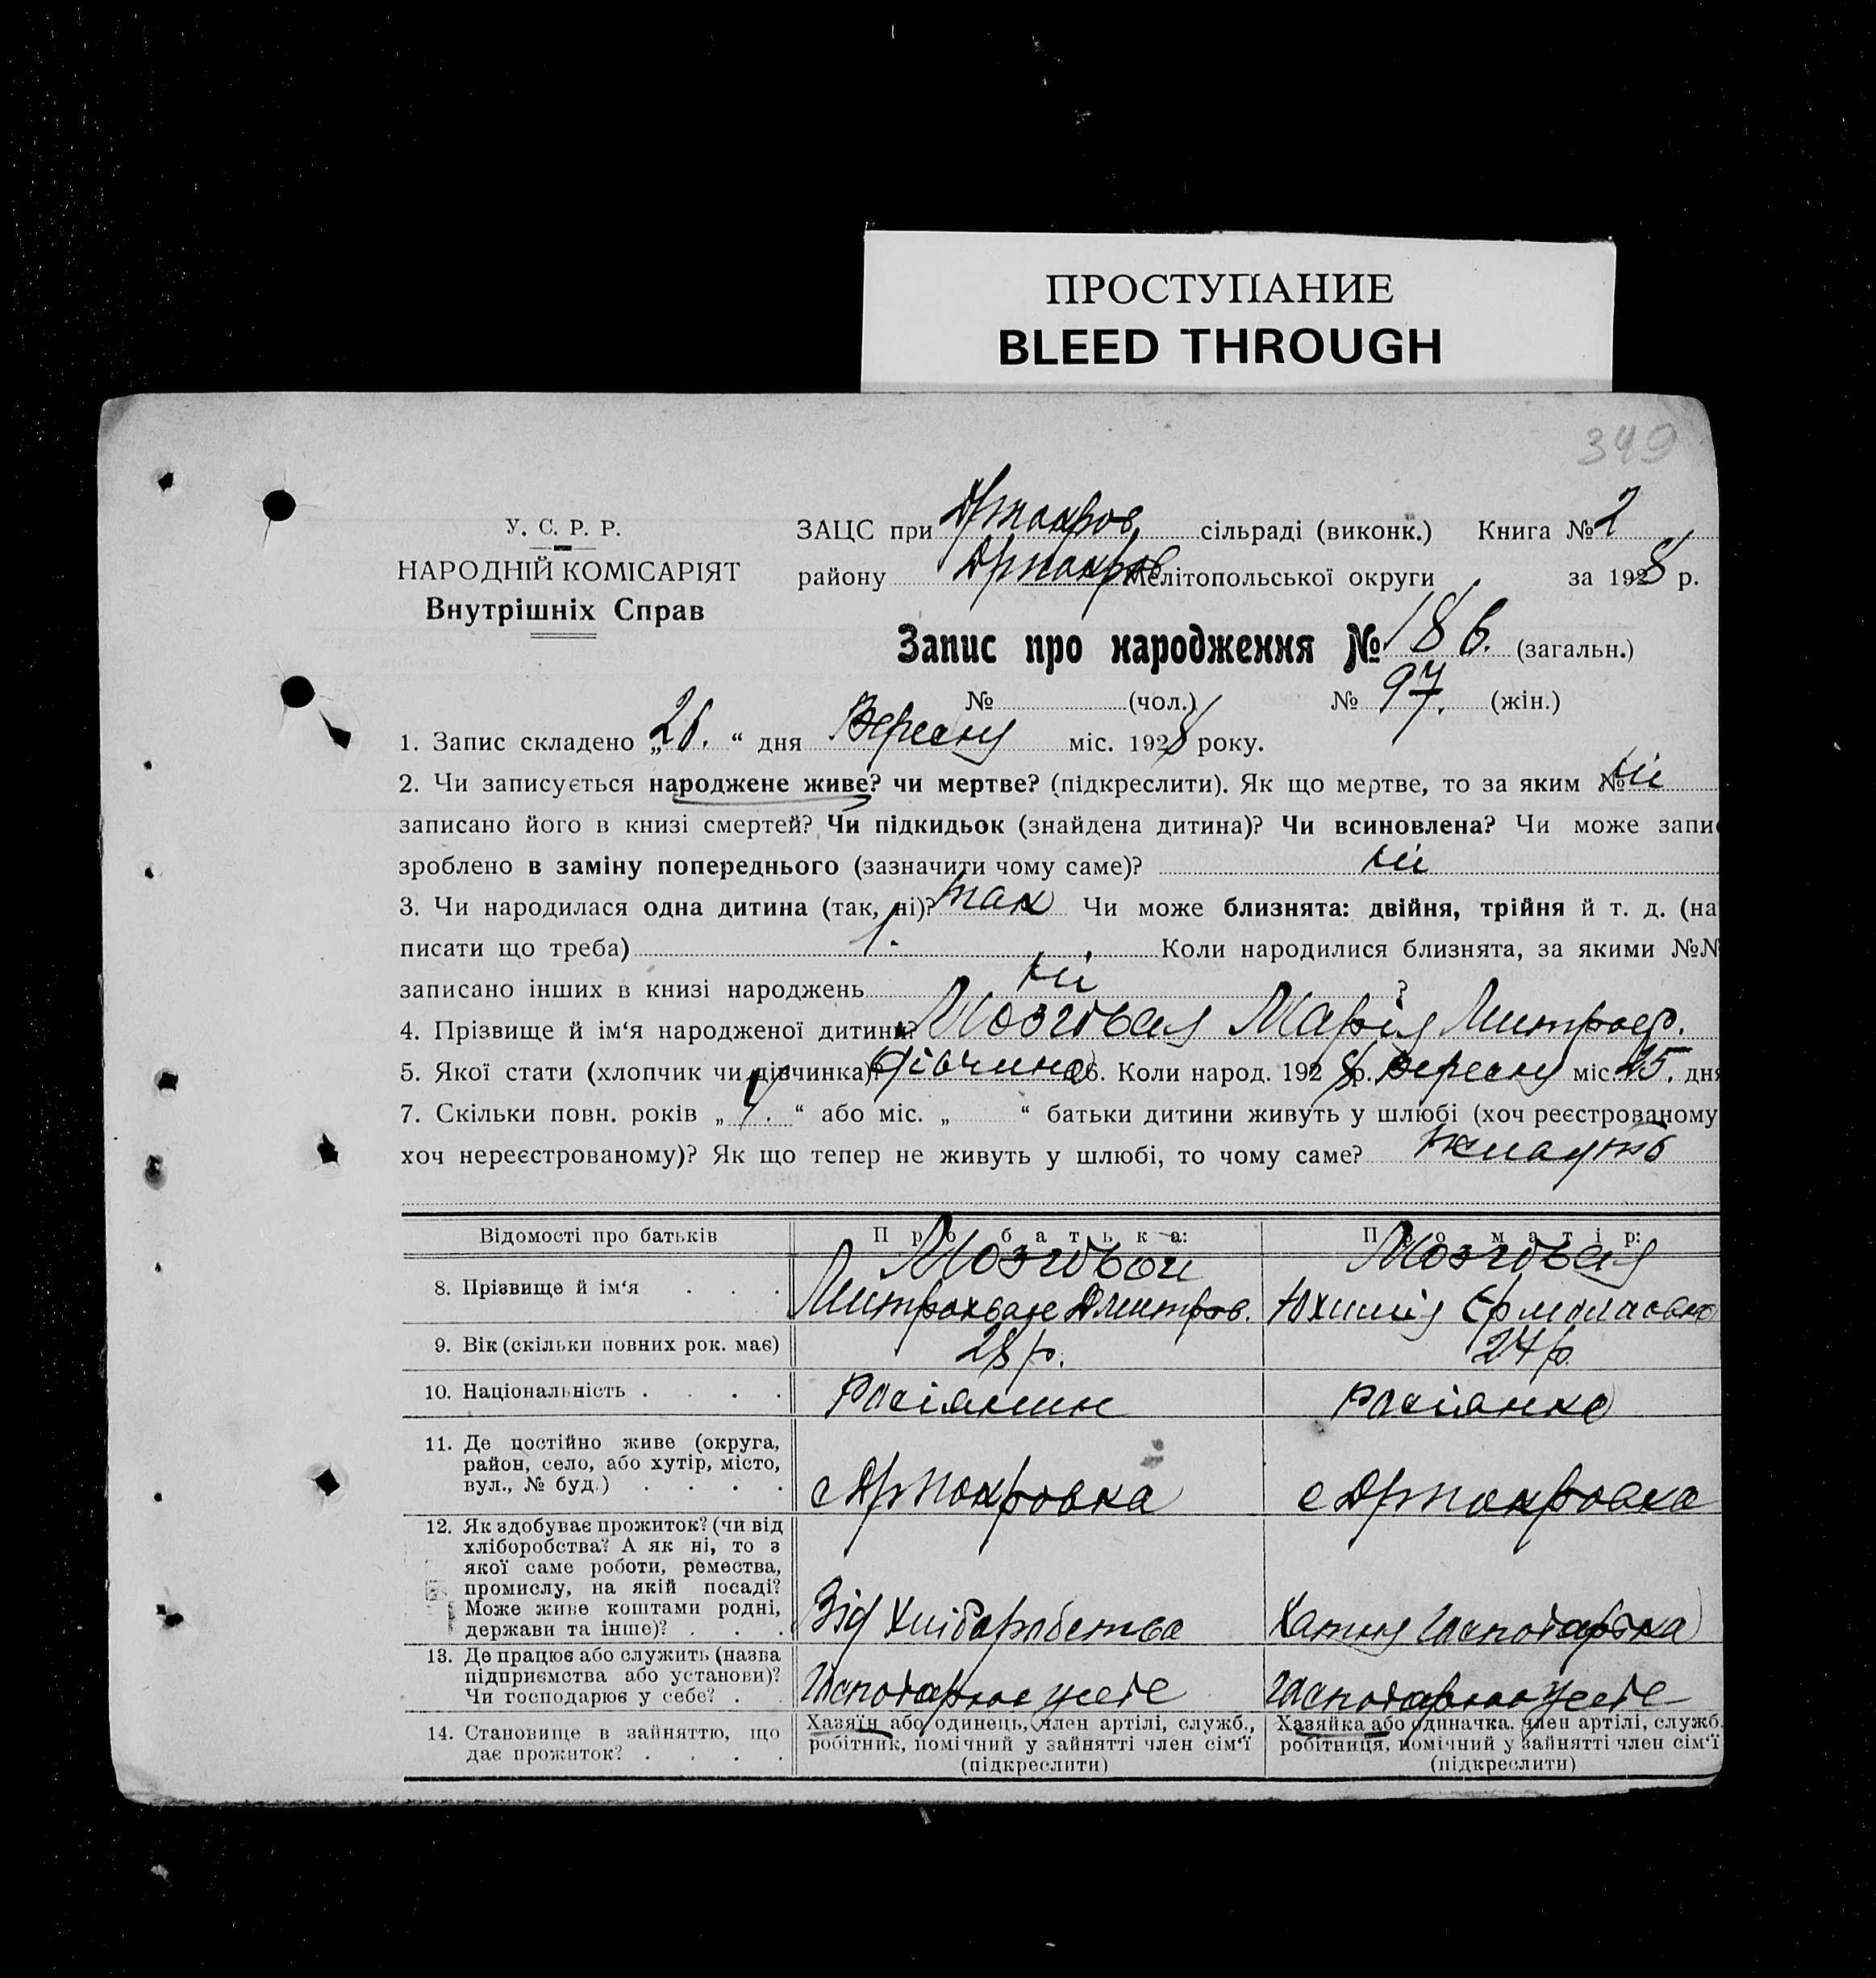 ПРОСТУПАНИЕ
BLEED THROUGH
349
У. С. Р. Р.
НАРОДНІЙ КОМІСАРІЯТ
Внутрішніх Справ
ЗАЦС при Др Покров. сільраді (виконк.) Книга № 2
району Др Покров Мелітопольської округи за 1928 р.
Запис про народження № 186. (загальн.)
№ (чол.) № 97. (жін.)
1. Запис складено „26. “ дня Вересня міс. 1928 року.
2. Чи записується народжене живе? чи мертве? (підкреслити). Як що мертве, то за яким № ні
записано його в книзі смертей? Чи підкидьок (знайдена дитина)? Чи всиновлена? Чи може запис
зроблено в заміну попереднього (зазначити чому саме)? ні
3. Чи народилася одна дитина (так, ні)? так Чи може близнята: двійня, трійня й т. д. (на
писати що треба) 1. Коли народилися близнята, за якими №№
записано інших в книзі народжень ні ?
4. Прізвище й ім‘я народженої дитини? Мозговая Марія Митроф.
5. Якої стати (хлопчик чи дівчинка)? дівчина 6. Коли народ. 1928 р. Вересня міс. 25. дня
7. Скільки повн. років „ “ або міс. „ “ батьки дитини живуть у шлюбі (хоч реєстрованому
хоч нереєстрованому)? Як що тепер не живуть у шлюбі, то чому саме?
Відомості про батьків Про батька: Про матір:
8. Прізвище й ім‘я . . . Мозговой Мозговая
Митрохван Дмитров. Юхимія Єрмолаовна
9. Вік (скільки повних рок. має) 28 р. 24 р.
10. Національність . . . . Росіянин Росіянка
11. Де постійно живе (округа,
район, село, або хутір, місто,
вул., № буд.) . . . . с Др Покровка с Др Покровка
12. Як здобуває прожиток? (чи від
хліборобства? А як ні, то з
якої саме роботи, ремества,
промислу, на якій посаді?
Може живе коштами родні,
держави та інше)? . . . Від хліборобства Хатня господарка
13. Де працює або служить (назва
підприємства або установи)?
Чи господарює у себе? . . Господарює у себе Господарює у себе
14. Становище в зайняттю, що
дає прожиток? . . . .
Хазяїн або одинець, член артілі, служб.,
робітник, помічний у зайнятті член сім‘ї
(підкреслити)
Хазяйка або одиначка, член артілі, служб.
робітниця, помічний у зайнятті член сім‘ї
(підкреслити)